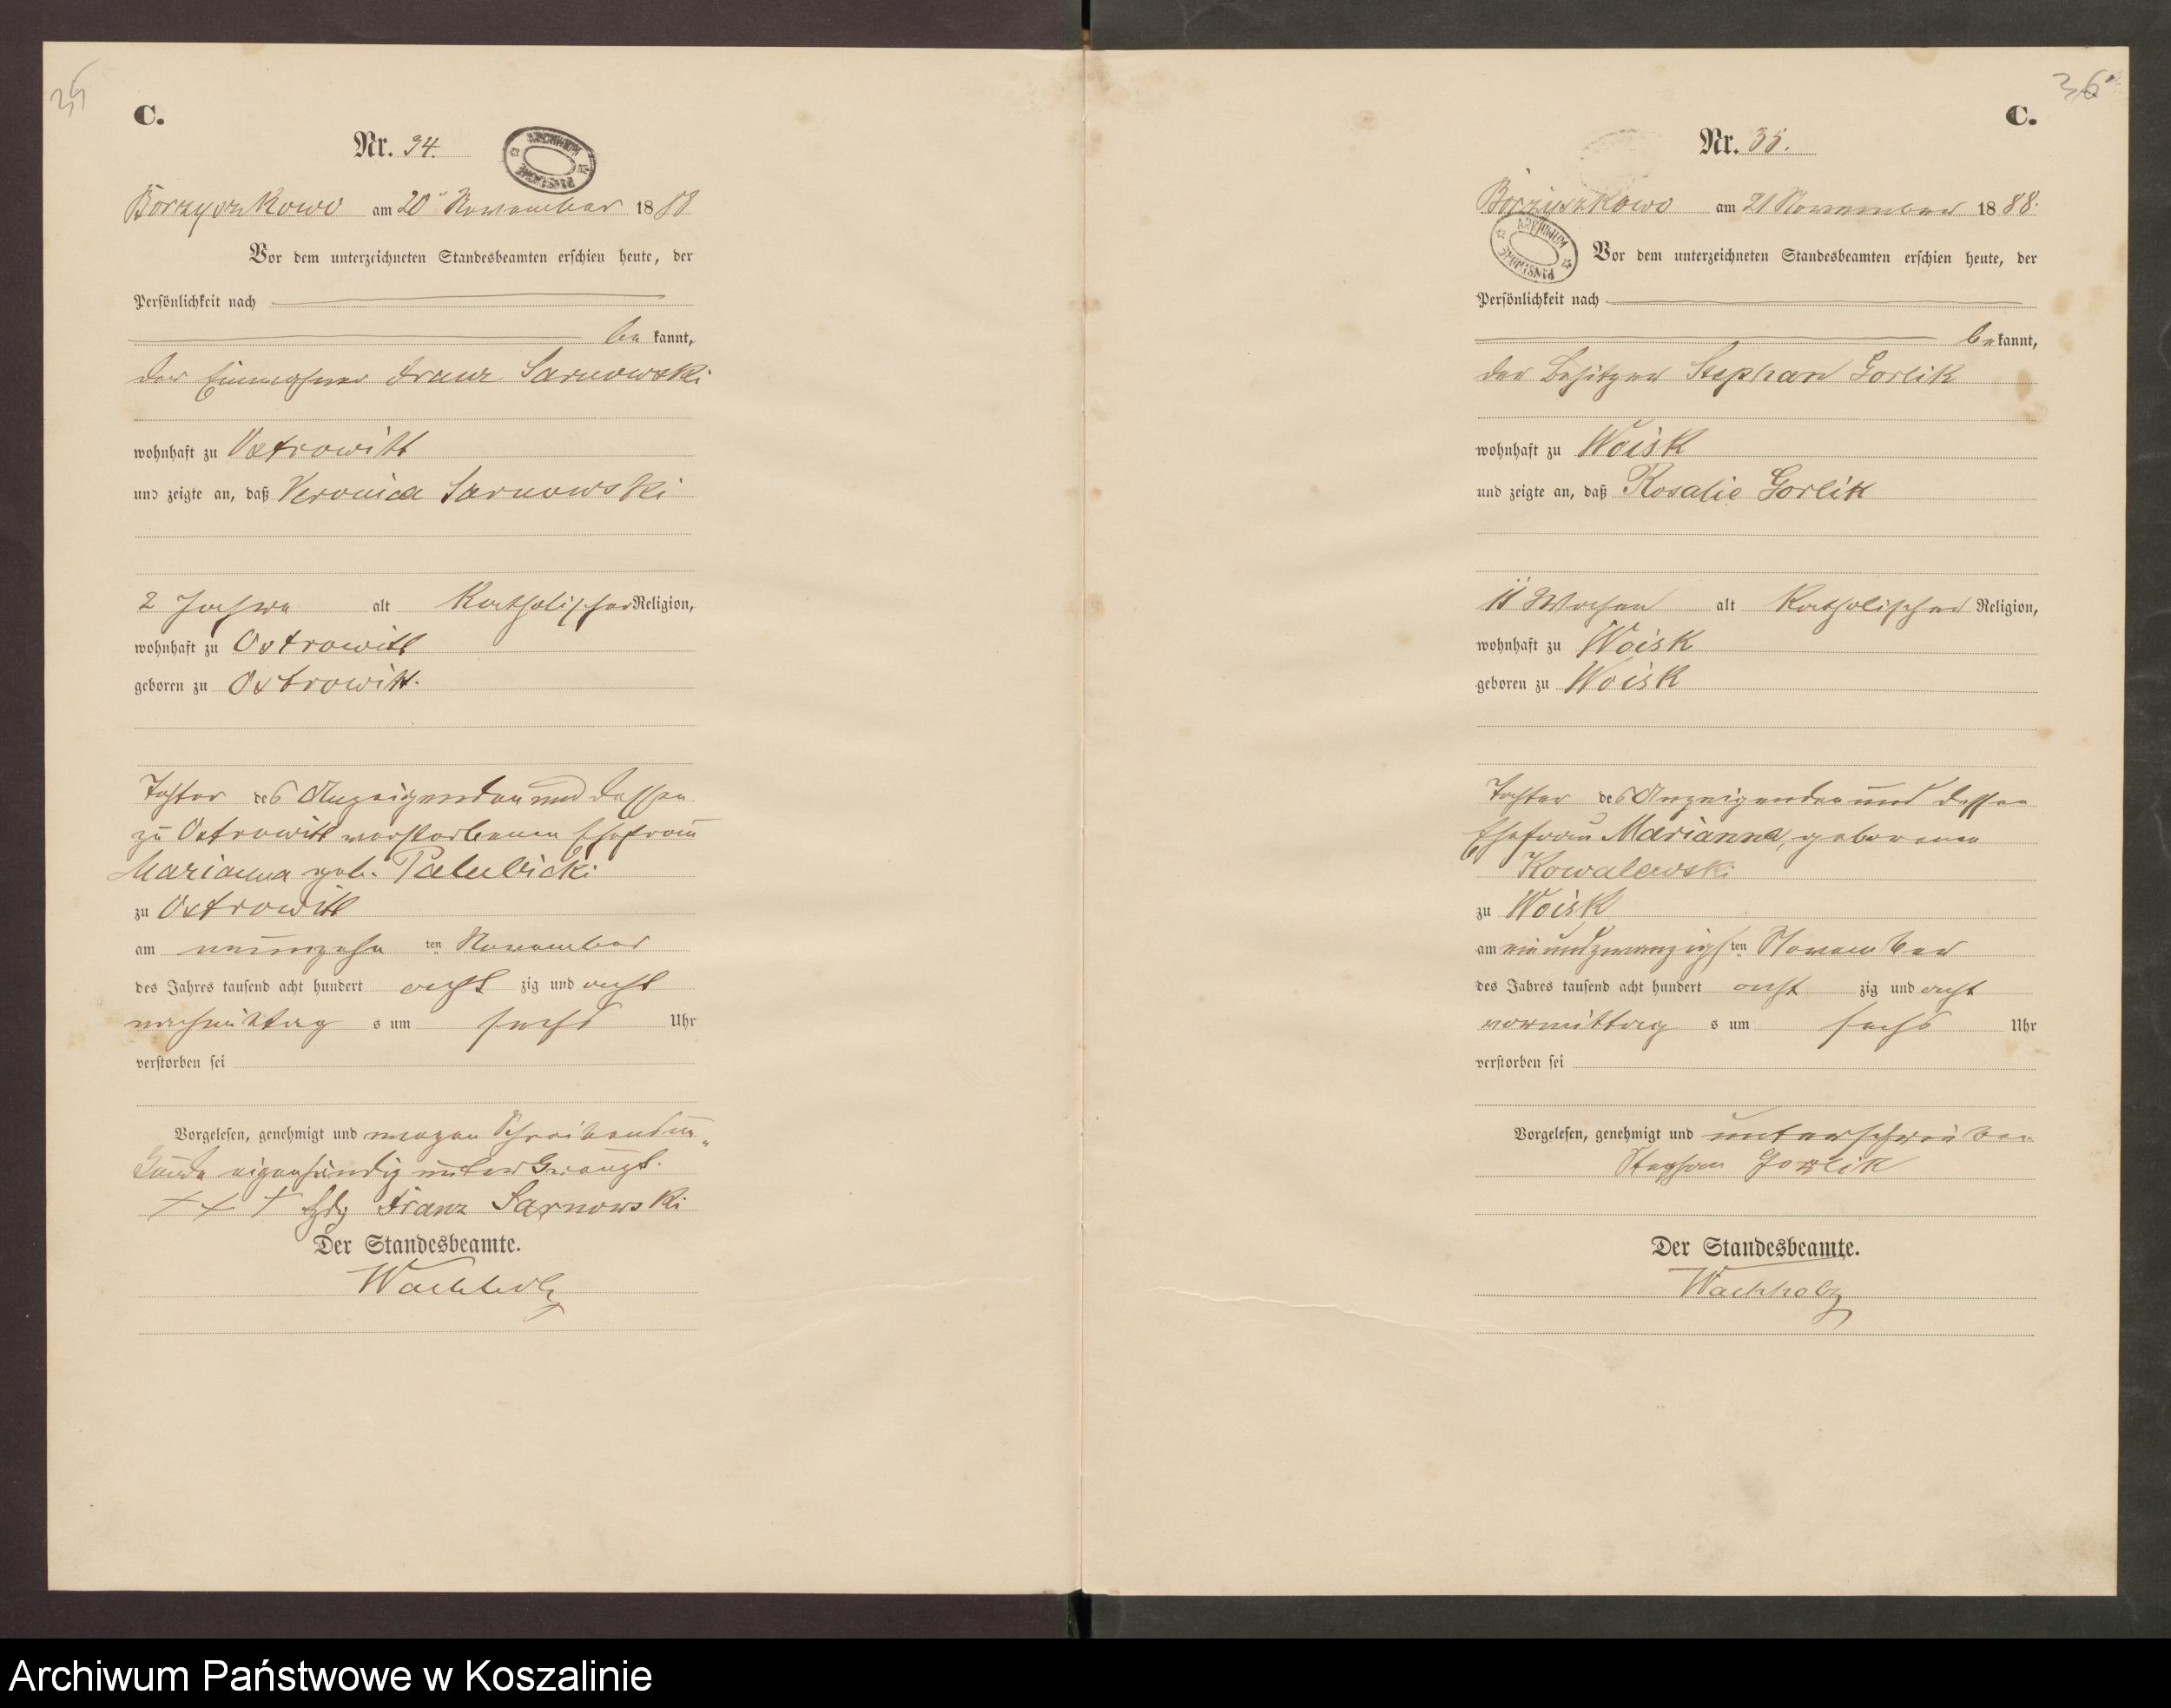 35
C.
Nr. 34.
ARCHIWUM PAŃSTWOWE
Borzyszkowo am 20 November 1888
Vor dem unterzeichneten Standesbeamten erschien heute, der
Persönlichkeit nach
bekannt,
der Einwohner Franz Sarnowski
wohnhaft zu Ostrowitt
und zeigte an, daß Veronica Sarnowski
2 Jahre alt Katholischer Religion,
wohnhaft zu Ostrowitt
geboren zu Ostrowitt.
Tochter des Anzeigenden und dessen
zu Ostrowitt verstorbenen Ehefrau
Marianna geb. Palubicki
zu Ostrowitt
am neunzehn ten November
des Jahres tausend acht hundert acht zig und acht
nachmittag s um sechs Uhr
verstorben sei
Vorgelesen, genehmigt und wegen Schreibensun„
kunde eigenhändig unterkreuzt.
+ + + Hdz Franz Sarnowski
Der Standesbeamte.
Wachholz
36
C.
Nr. 35.
Borzyszkowo am 21 November 1888.
ARCHIWUM PAŃSTWOWE
Vor dem unterzeichneten Standesbeamten erschien heute, der
Persönlichkeit nach
bekannt,
der Besitzer Stephan Gorlik
wohnhaft zu Woisk
und zeigte an, daß Rosalie Gorlik
11 Wochen alt Katholischer Religion,
wohnhaft zu Woisk
geboren zu Woisk
Tochter des Anzeigenden und dessen
Ehefrau Marianna, geborenen
Kowalewski
zu Woisk
am einundzwanzigsten November
des Jahres tausend acht hundert acht zig und acht
vormittag s um sechs Uhr
verstorben sei
Vorgelesen, genehmigt und unterschrieben
Stephan Gorlik
Der Standesbeamte.
Wachholz
Archiwum Państwowe w Koszalinie